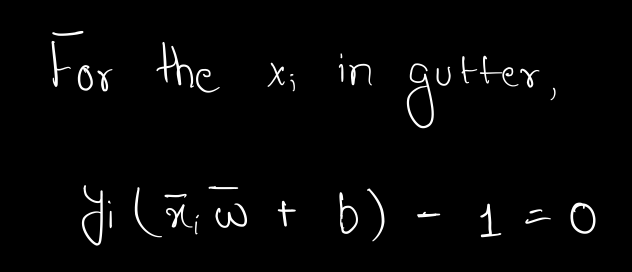 For the xᵢ in gutter,
yᵢ (x̄ᵢ w̄ + b) - 1 = 0